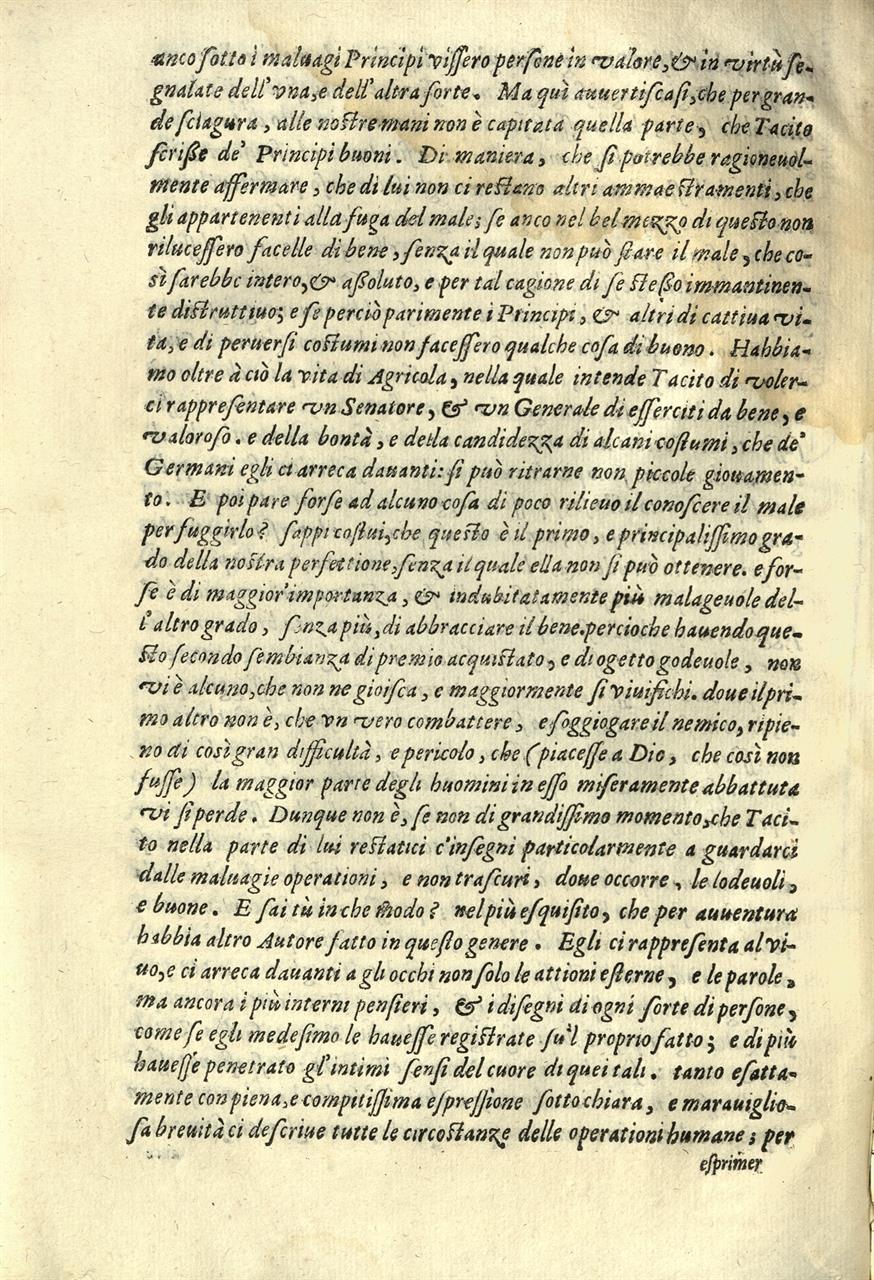 anco sotto i maluagi Principi vissero persone in valore, & in virtù se-
gnalate dell'vna, e dell'altra sorte. Ma quì auuertiscasi, che per gran-
de sciagura, alle nostre mani non è capitata quella parte, che Tacito
scriße de' Principi buoni. Di maniera, che si potrebbe ragioneuol-
mente affermare, che di lui non ci restano altri ammaestramenti, che
gli appartenenti alla fuga del male; se anco nel bel mezzo di questo non
rilucessero facelle di bene, senza il quale non può stare il male, che co-
sì sarebbe intero, & aßoluto, e per tal cagione di se steßo immantinen-
te distruttiuo; e se perciò parimente i Principi, & altri di cattiua vi-
ta, e di peruersi costumi non facessero qualche cosa di buono. Habbia-
mo oltre à ciò la vita di Agricola, nella quale intende Tacito di voler-
ci rappresentare vn Senatore, & vn Generale di esserciti da bene, e
valoroso. e della bontà, e della candidezza di alcani costumi, che de'
Germani egli ci arreca dauanti: si può ritrarne non piccole giouamen-
to. E poi pare forse ad alcuno cosa di poco rilieuo il conoscere il male
per fuggirlo? sappi costui, che questo è il primo, e principalissimo gra-
do della nostra perfettione, senza il quale ella non si può ottenere. e for-
se è di maggior'importanza, & indubitatamente più malageuole del-
l'altro grado, senza più, di abbracciare il bene. percioche hauendo que-
sto secondo sembianza di premio acquistato, e di ogetto godeuole, non
vi è alcuno, che non ne gioisca, e maggiormente si viuifichi. doue il pri-
mo altro non è, che vn vero combattere, e soggiogare il nemico, ripie-
no di così gran difficultà, e pericolo, che (piacesse a Dio, che così non
fusse) la maggior parte degli huomini in esso miseramente abbattuta
vi si perde. Dunque non è, se non di grandissimo momento, che Taci-
to nella parte di lui restatici c'insegni particolarmente a guardarci
dalle maluagie operationi, e non trascuri, doue occorre, le lodeuoli,
e buone. E sai tù in che modo? nel più esquisito, che per auuentura
habbia altro Autore fatto in questo genere. Egli ci rappresenta al vi-
uo, e ci arreca dauanti a gli occhi non solo le attioni esterne, e le parole,
ma ancora i più interni pensieri, & i disegni di ogni sorte di persone,
come se egli medesimo le hauesse registrate su'l proprio fatto; e di più
hauesse penetrato gl'intimi sensi del cuore di quei tali. tanto esatta-
mente con piena, e compitissima espressione sotto chiara, e marauiglio-
sa breuità ci descriue tutte le circostanze delle operationi humane; per
esprimer